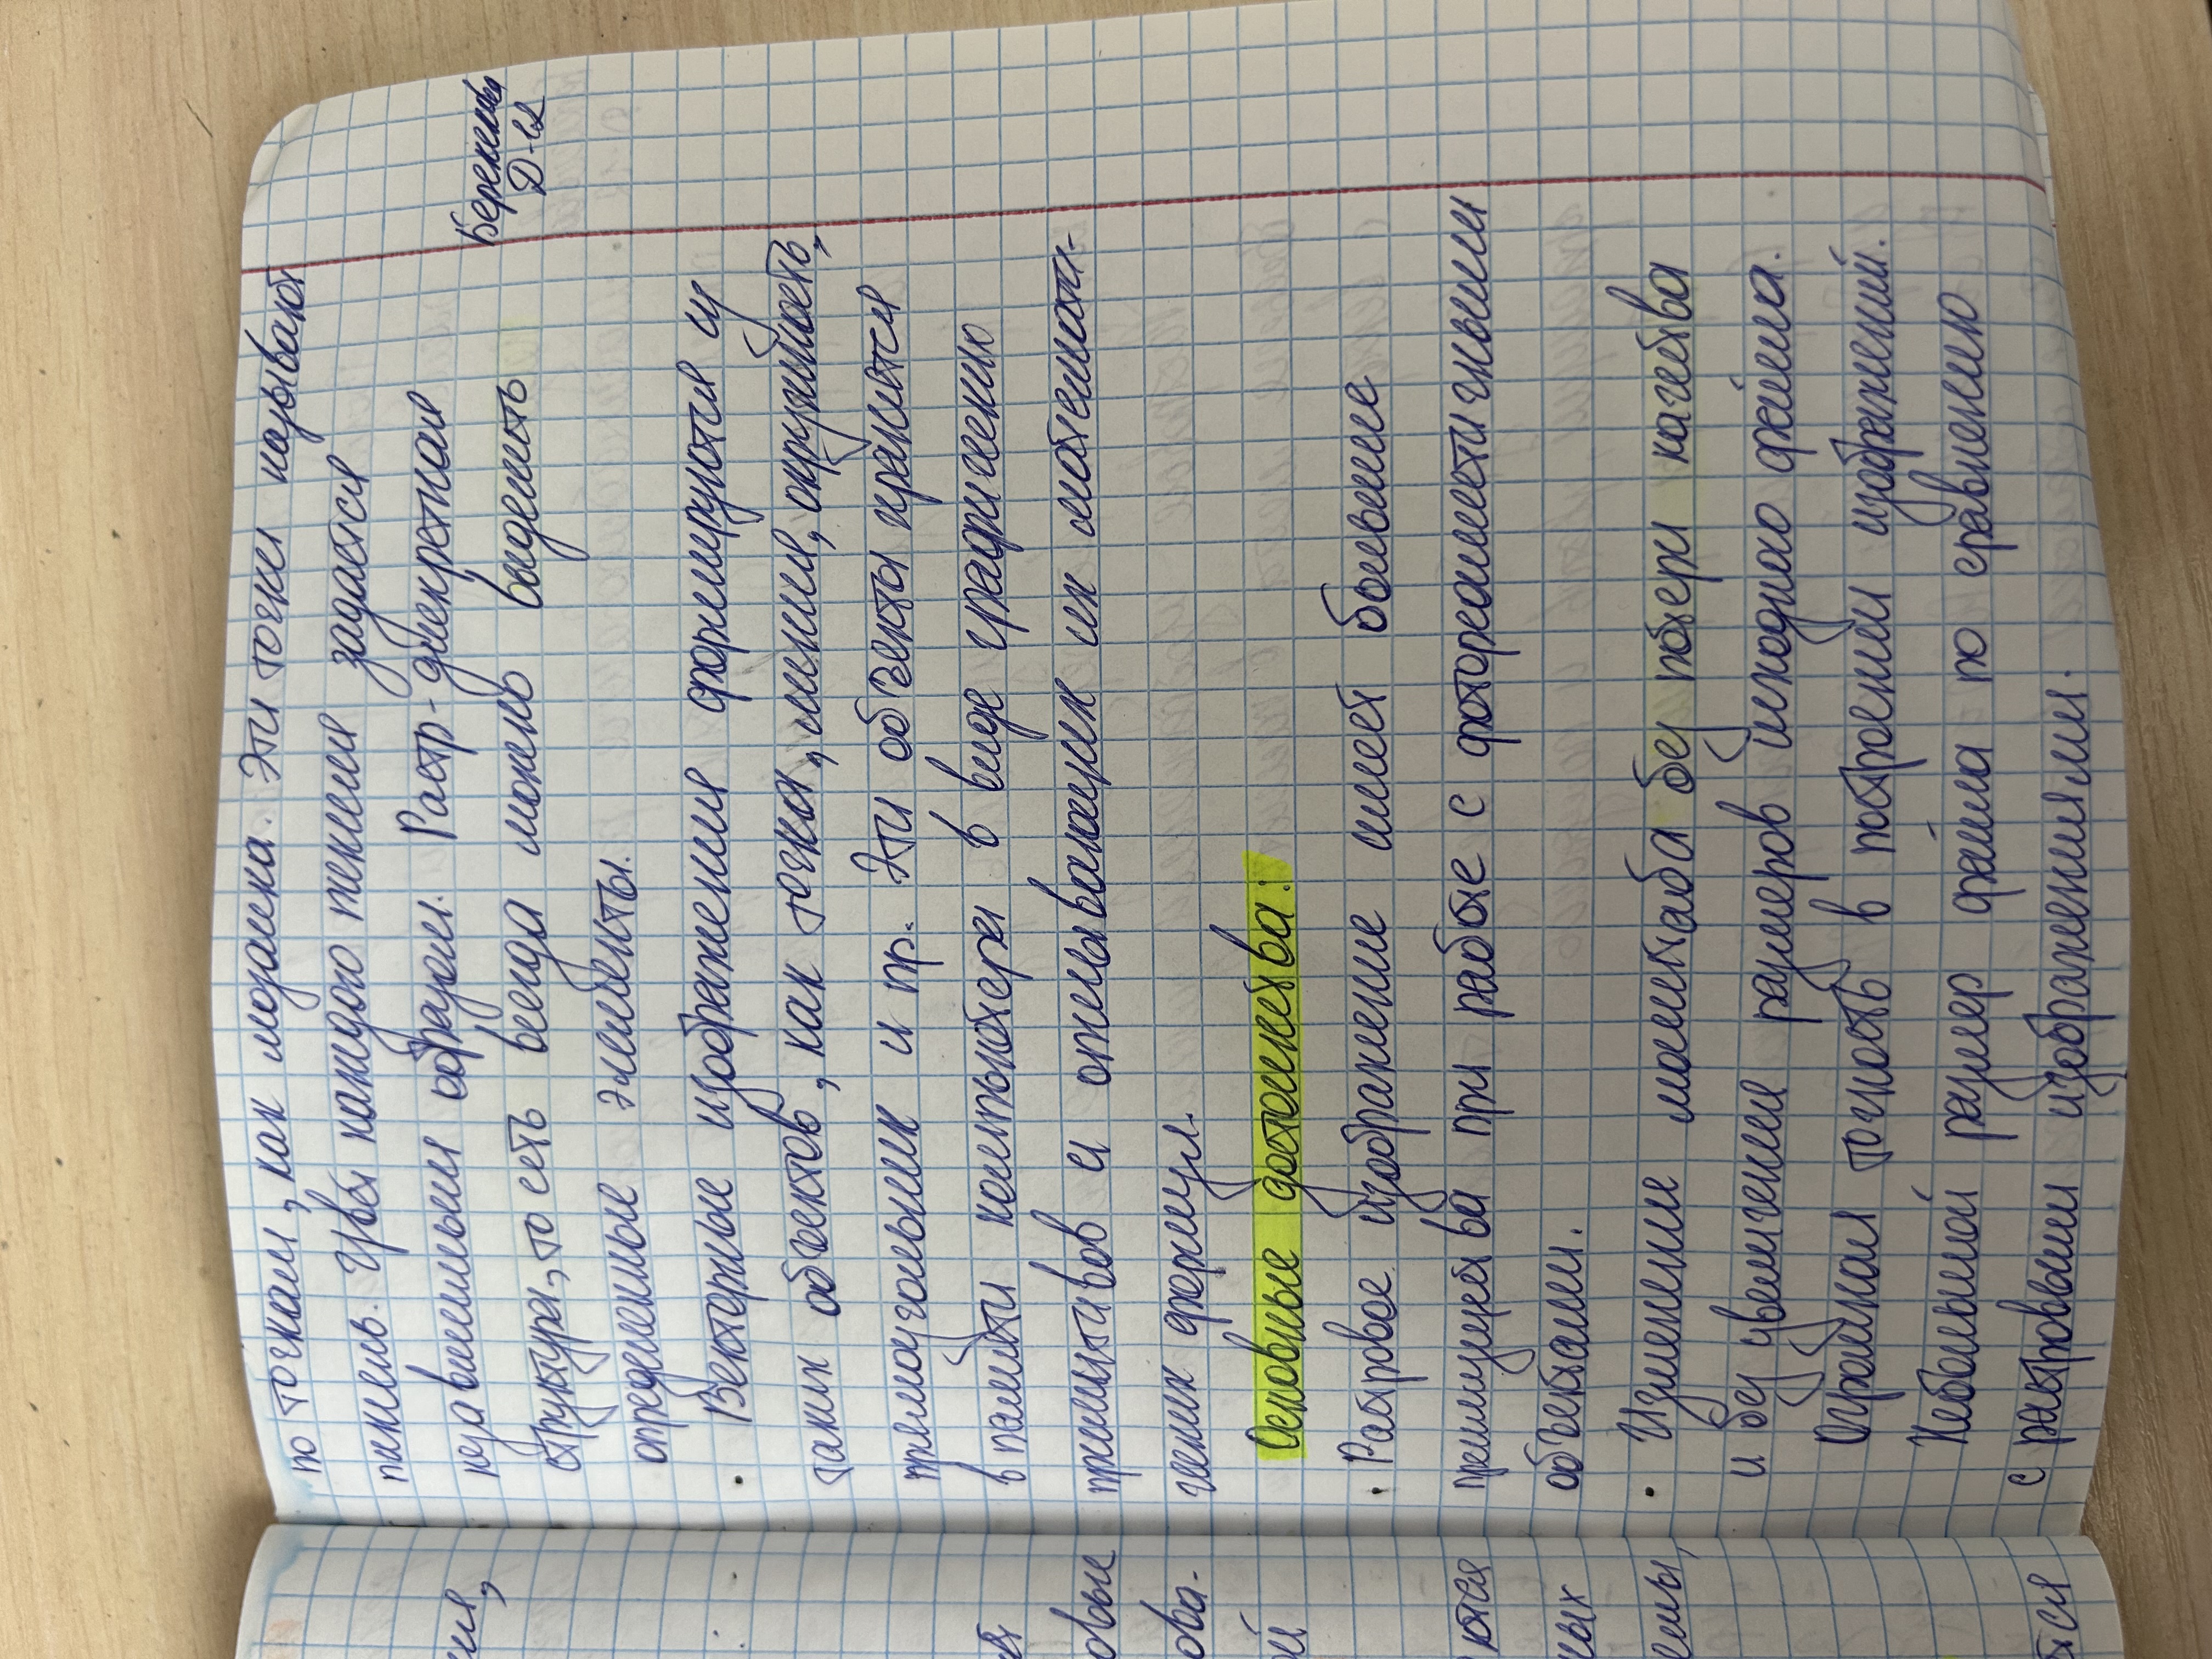 по точкам, как мозаика. Эти точки называют
пиксель. Цвет каждого пикселя задается
независимым образом. Растр - дискретная
структура, то есть всегда можно выделить
определенные элементы.
Береже
Д-12
• Векторные изображения формируются из
таких объектов, как точка, линия, окружность,
прямоугольник и пр. Эти объекты хранятся
в памяти компьютера в виде графических
примитивов и описывающих их математи-
ческих формул.
Основные достоинства:
• Растровое изображение имеет большие
преимущества при работе с фотореалистичными
объектами.
• Изменение масштаба без потери качества
и без увеличения размеров исходного файла.
Огромная точность в построении изображений.
Небольшой размер файла по сравнению
с растровыми изображениями.
ия,
овые
ова-
ой
ются
ных
емы,
тся